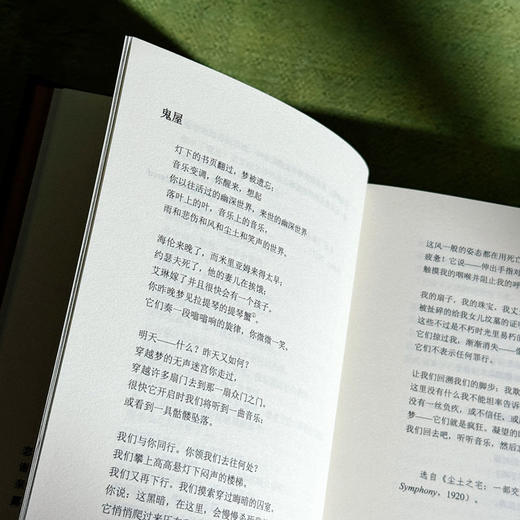 鬼屋
灯下的书页翻过，梦被遗忘；
音乐变调，你醒来，想起
你以往活过的幽深世界，来世的幽深世界，
落叶上的叶，音乐上的音乐，
雨和悲伤和风和尘土和笑声的世界。
海伦来晚了，而米里亚姆来得太早；
约瑟夫死了，他的妻儿在挨饿；
艾琳嫁了并且很快会有一个孩子。
你昨晚梦见拉提琴的提琴蟹
它们奏一段嗡嗡响的旋律，你微微一笑。
明天——什么？昨天又如何？
穿越梦的无声迷宫你走过，
穿越许多扇门去到那一扇众门之门。
很快它开启时我们将听到一曲音乐；
或看到一具骷髅坠落。
我们与你同行。你领我们去往何处？
我们攀上高高悬灯下闷声的楼梯，
我们又再下行。我们摸索穿过晦暗的囚室，
你说：这黑暗，在这里，会慢慢杀死
它悄悄爬过来压在
这风一般的姿态都在用死亡
疲惫！它说——伸出手指对
触摸我的咽喉并阻止我的呼
我的扇子，我的珠宝，我
被扯碎的给我女儿坟墓的证
这些不过是不朽时光里易朽的
它们掠过我，渐渐消失——像
它们不表示任何罪行。
让我们回溯我们的脚步：我欺
这里没有什么我不能坦率告诉
没有一丝负疚，或不信任，或
梦——它们就是疯狂。凝望的
我们回去吧，听听音乐，然后
选自《尘土之宅：一部交
Symphony，1920）。